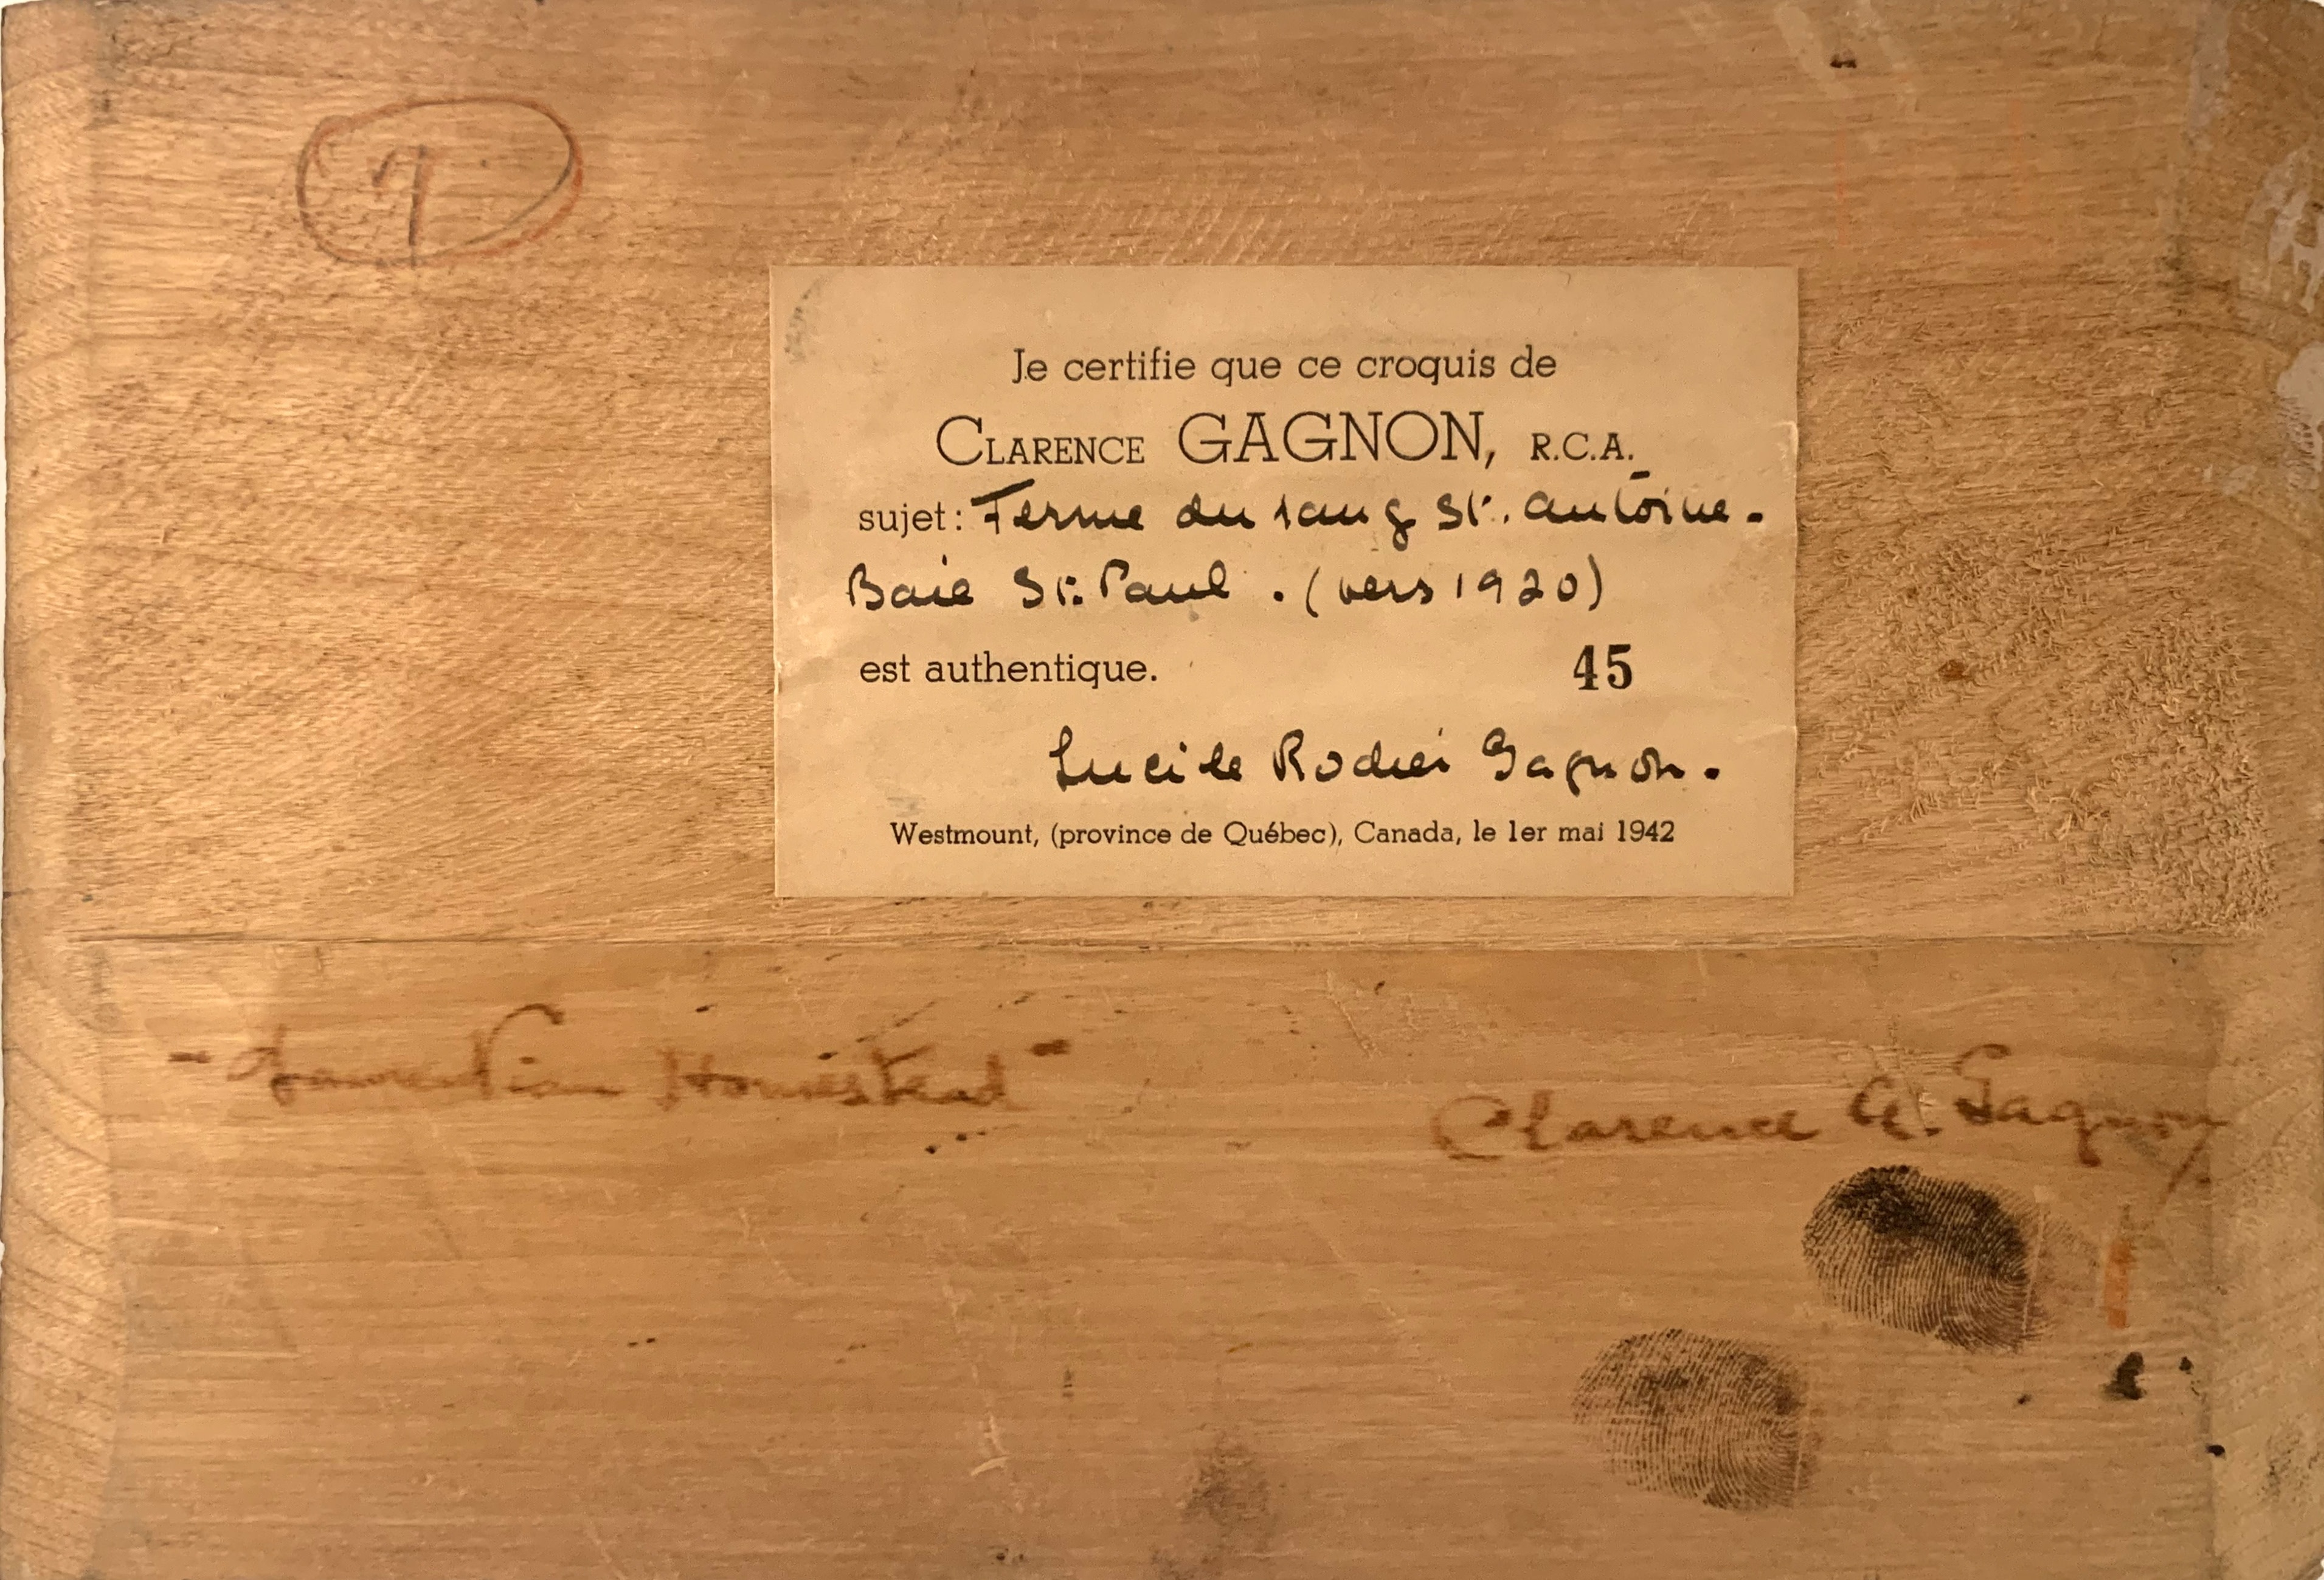 7
Je certifie que ce croquis de
CLARENCE GAGNON, R.C.A.
sujet: Ferme du rang St. Antoine.
Baie St. Paul. (vers 1920)
est authentique. 45
Lucile Rodier Gagnon.
Westmount, (province de Québec), Canada, le 1er mai 1942
"Laurentian Homestead"
Clarence A. Gagnon